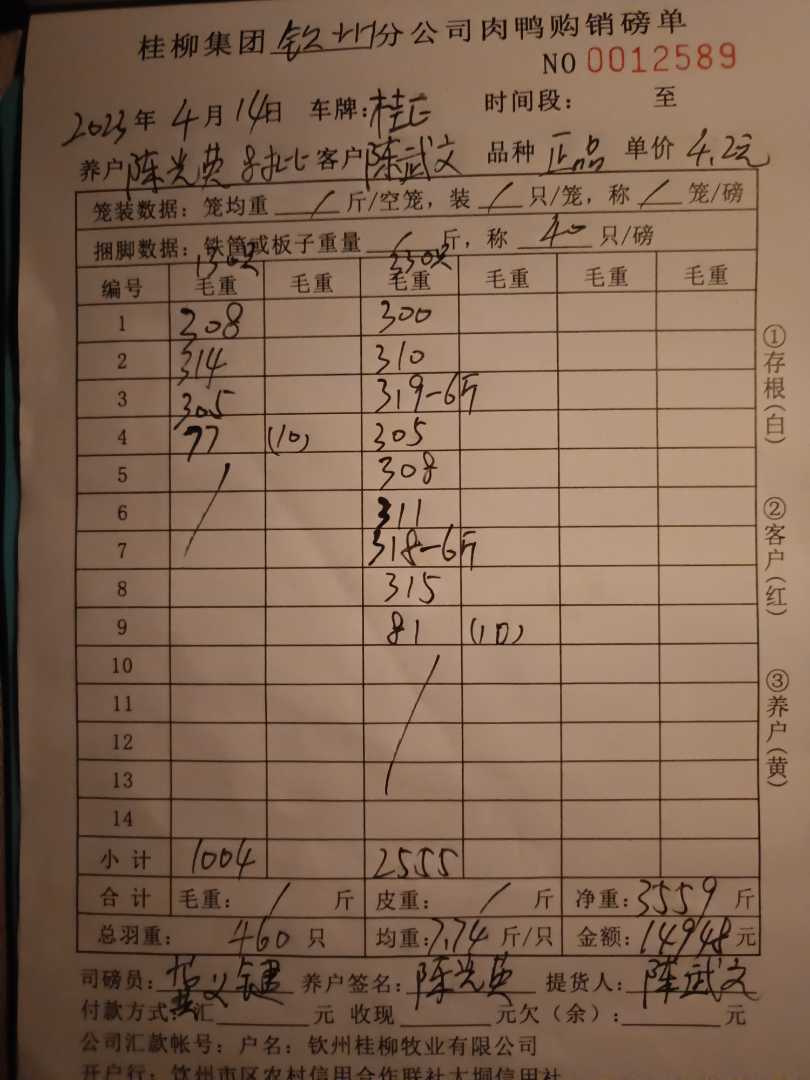 桂柳集团钦州分公司肉鸭购销磅单
NO 0012589
2023年4月14日 车牌:桂 时间段: 至
养户陈光英 客户陈武文 品种 正品 单价 4.2元
笼装数据: 笼均重 / 斤/空笼, 装 / 只/笼, 称 / 笼/磅
捆脚数据: 铁筒或板子重量 / 斤, 称 40 只/磅
130只 330只
编号 毛重 毛重 毛重 毛重 毛重 毛重
1 308 300
2 314 310
3 305 319-6斤
4 77 (10) 305
5 / 308
6 311
7 318-6斤
8 315
9 81 (10)
10 /
11
12
13
14
小计 1004 2555
合计 毛重: / 斤 皮重: / 斤 净重:3559斤
总羽重: 460只 均重:7.74斤/只 金额:14948元
司磅员: 养户签名:陈光英 提货人:陈武文
付款方式:汇 元 收现 元欠(余): 元
公司汇款帐号: 户名: 钦州桂柳牧业有限公司
开户行: 钦州市区农村信用合作联社大垌信用社
①存根(白)
②客户(红)
③养户(黄)